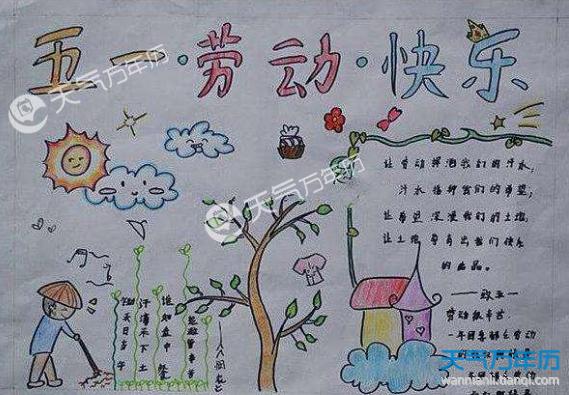 五一·劳动·快乐
让劳动挥洒我们的汗水,
汗水播种我们的希望;
让希望深浸我们的土壤,
让土壤孕育出我们快乐
的果品。
锄禾日当午
汗滴禾下土
谁知盘中餐
粒粒皆辛苦
一年四季都在劳动
天气万年历
天气万年历
天气万年历
wannianli.tianqi.com